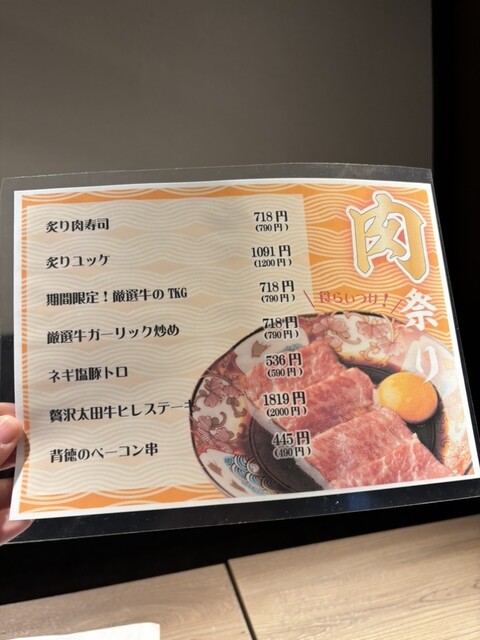 肉祭り
喰らいつけ!
炙り肉寿司 718円
(790円)
炙りユッケ 1091円
(1200円)
期間限定!厳選牛のTKG 718円
(790円)
厳選牛ガーリック炒め 718円
(790円)
ネギ塩豚トロ 536円
(590円)
贅沢太田牛ヒレステーキ 1819円
(2000円)
背徳のベーコン串 445円
(490円)